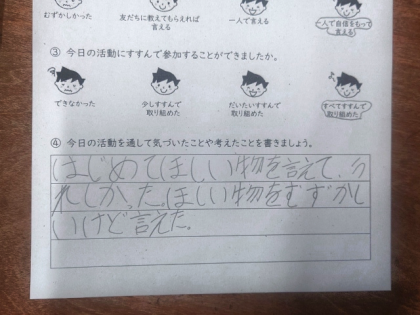 むずかしかった 友だちに教えてもらえれば 一人で言える 一人で自信をもって
言える 言える
③ 今日の活動にすすんで参加することができましたか。
できなかった 少しすすんで だいたいすすんで すべてすすんで
取り組めた 取り組めた 取り組めた
④ 今日の活動を通して気づいたことや考えたことを書きましょう。
はじめてほしい物を言えて、う
れしかった。ほしい物をむずかし
いけど言えた。